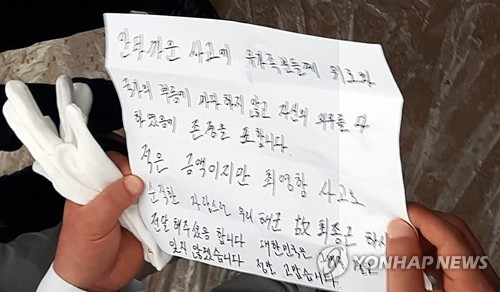 안타까운 사고에 유가족분들께 위로와
국가의 부름에 마다하지 않고 자신의 의무를 다
하였음에 존경을 표합니다.
적은 금액이지만 최영함 사고로
순직한 자랑스런 우리 해군 故 최종근 하사
전달 해주셨음 합니다 대한민국은
잊지 않겠습니다 정말 고맙습니다.
YONHAP NEWS